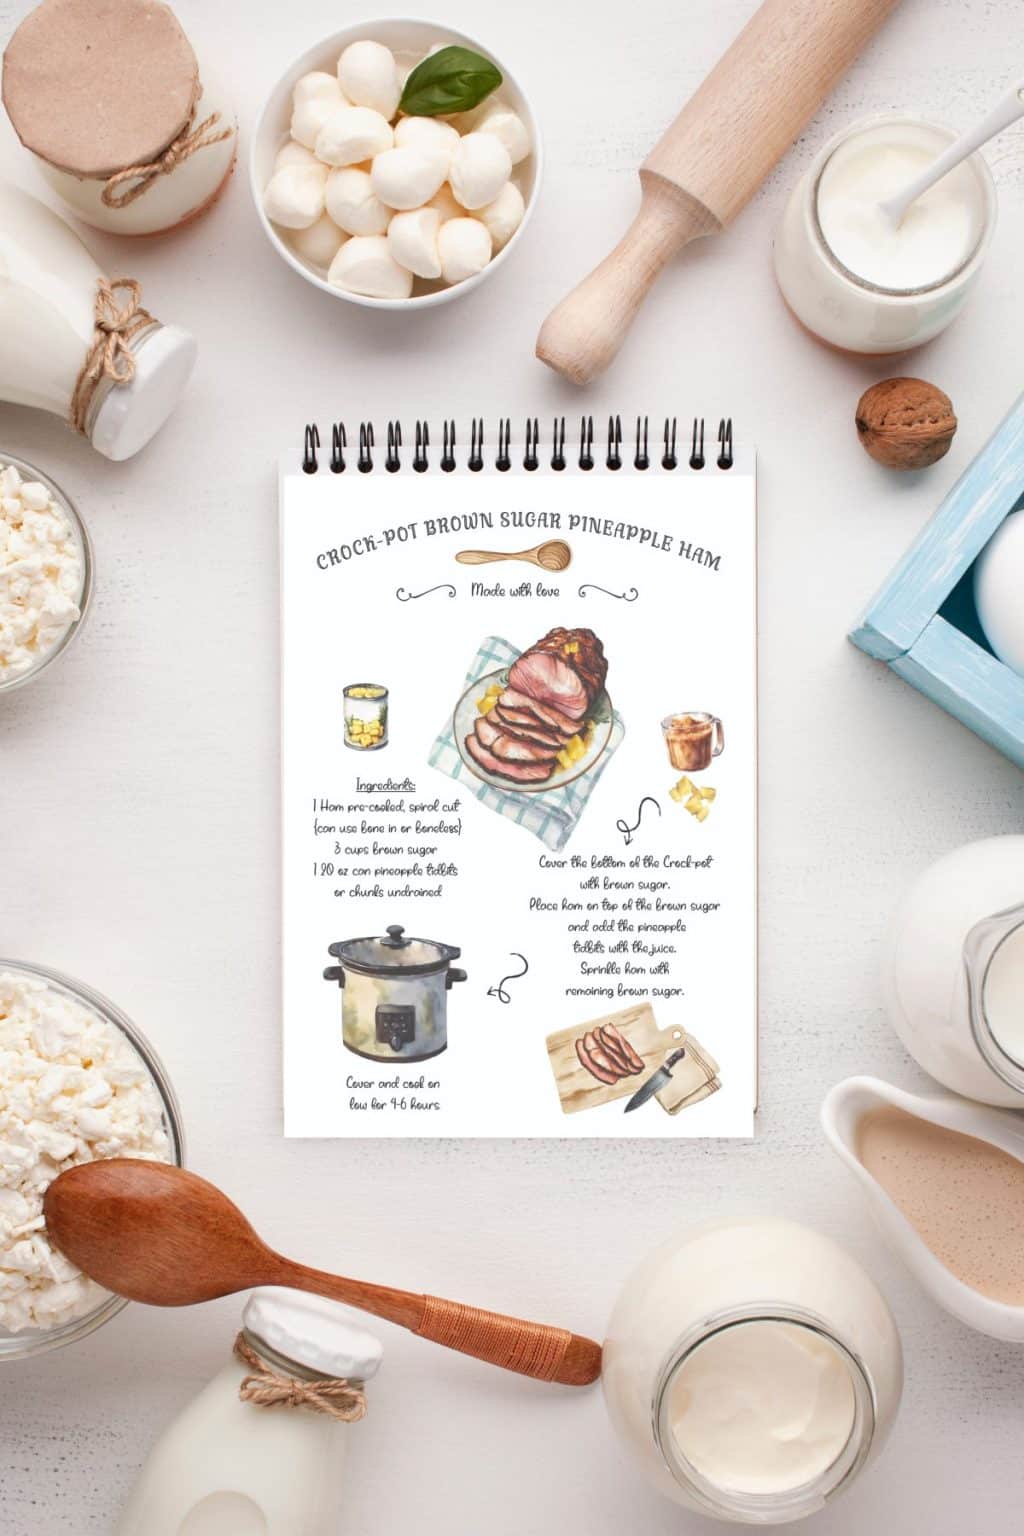 CROCK-POT BROWN SUGAR PINEAPPLE HAM
Made with love
Ingredients:
1 Ham pre-cooked, spiral cut
{can use bone in or boneless}
3 cups brown sugar
1 20 oz can pineapple tidbits
or chunks undrained
Cover the bottom of the Crock-pot
with brown sugar.
Place ham on top of the brown sugar
and add the pineapple
tidbits with the juice.
Sprinkle ham with
remaining brown sugar.
Cover and cook on
low for 4-6 hours.